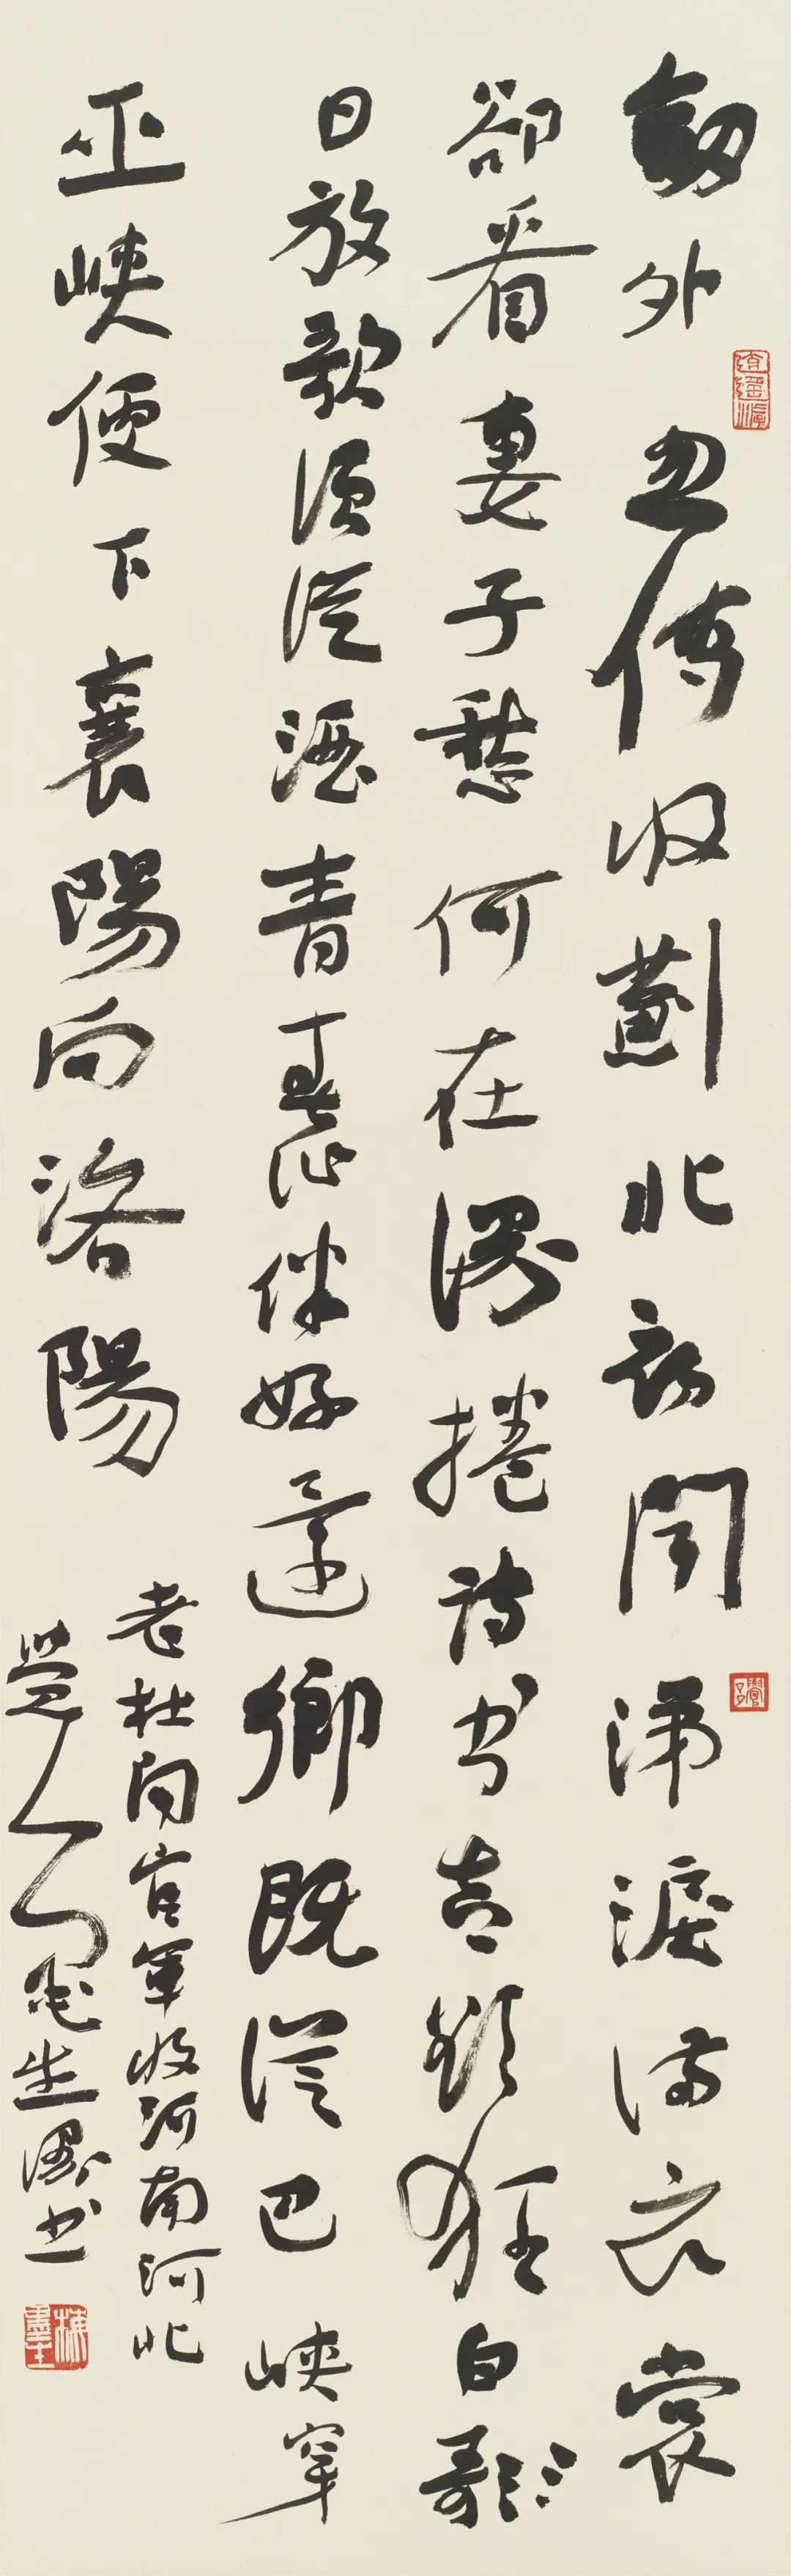 劒外忽傳收薊北初聞涕淚滿衣裳
卻看妻子愁何在漫捲詩書喜欲狂白
日放歌須從酒青春作伴好還鄉既從巴峽穿
巫峽便下襄陽向洛陽
老杜聞官軍收河南河北
墨生書
梅墨生